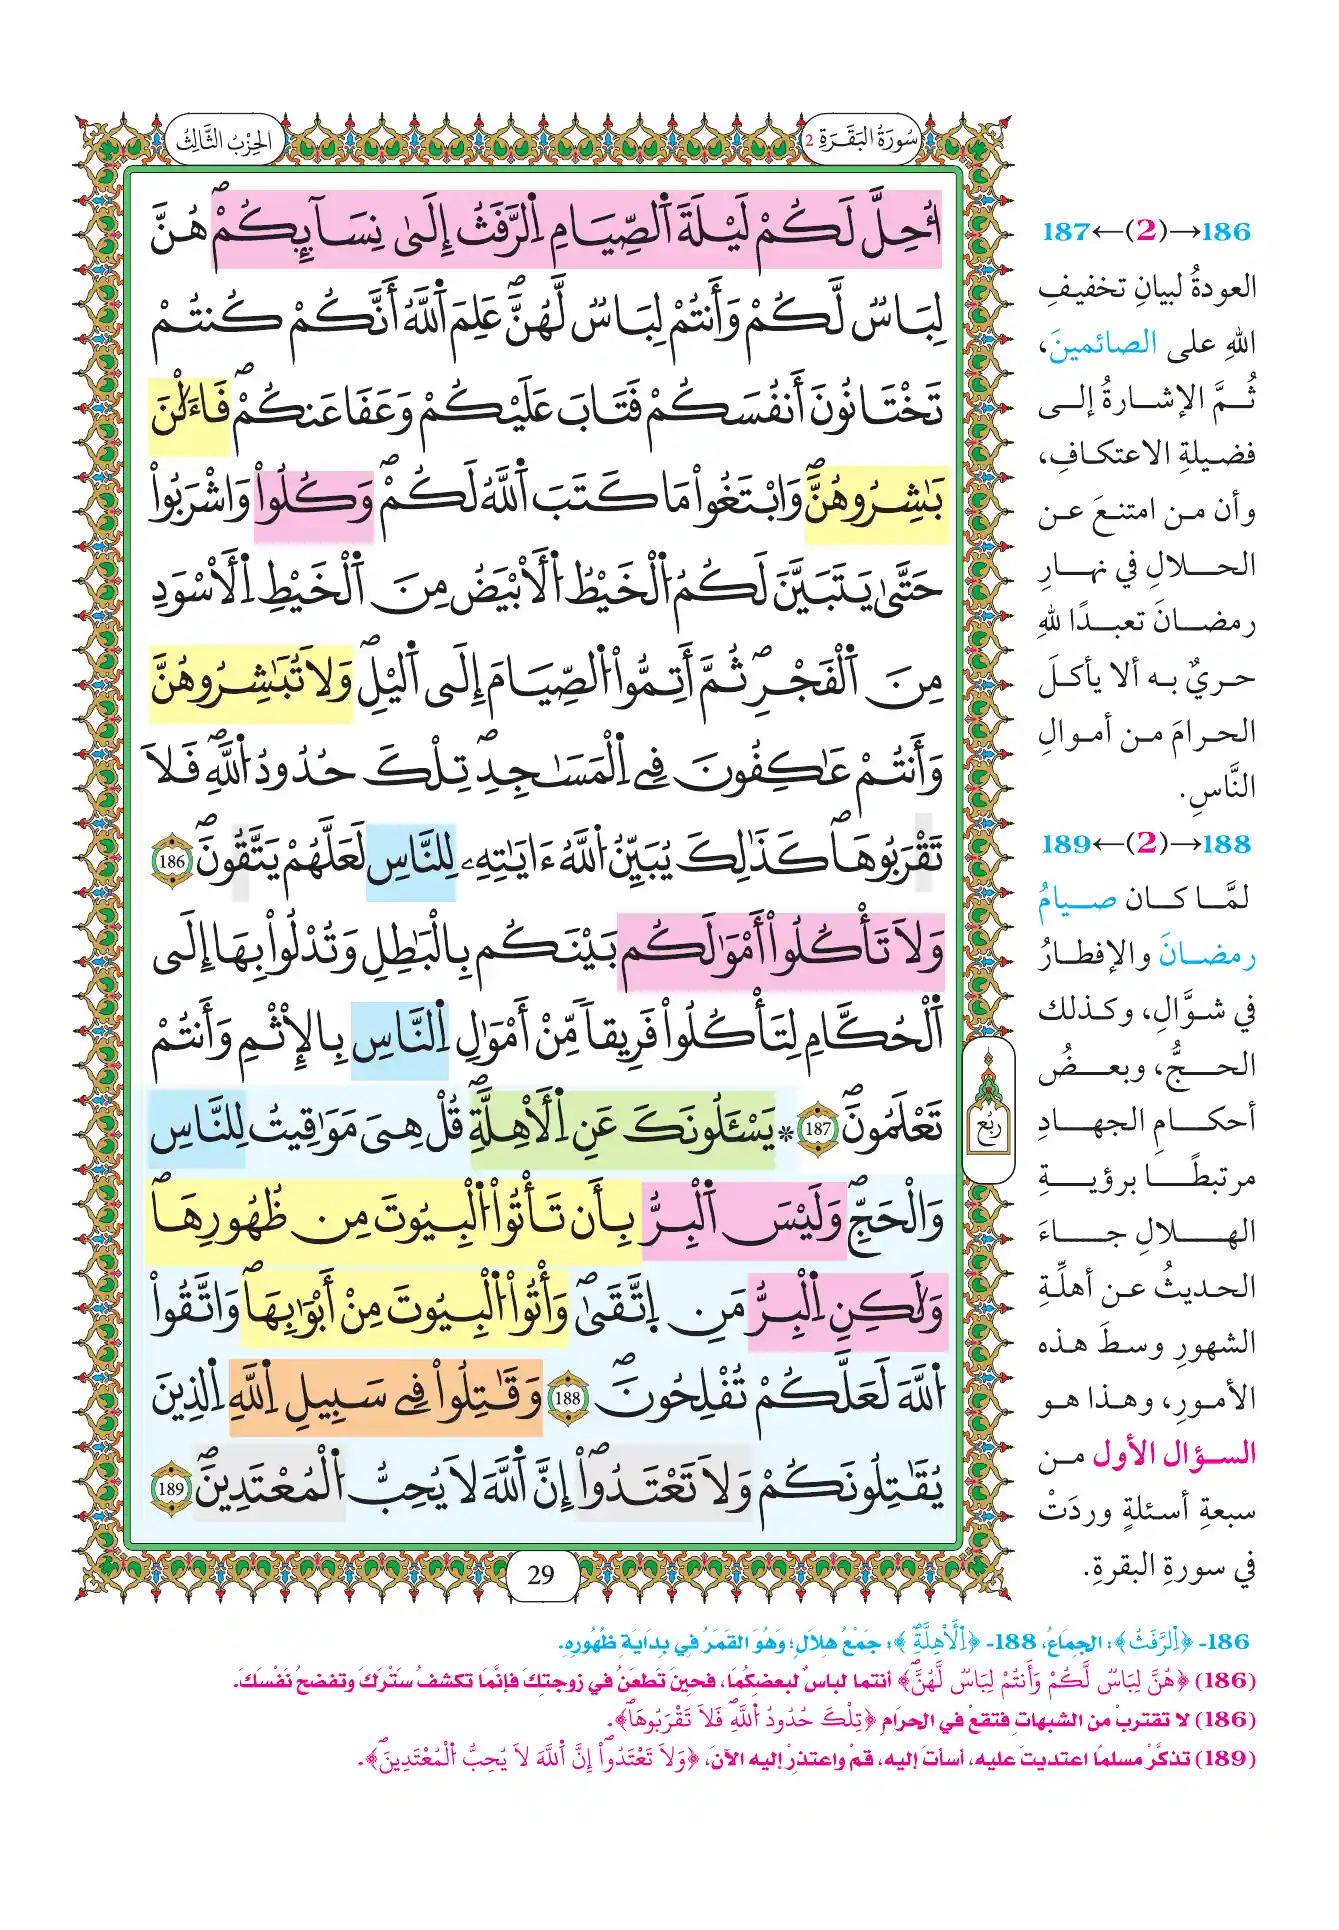 سُورَةُ البَقَرَةِ 2
الحِزْبُ الثَّالِثُ
اُحِلَّ لَكُمْ لَيْلَةَ اَلصِّيَامِ اِلرَّفَثُ إِلَىٰ نِسَآئِكُمْۖ هُنَّ
لِبَاسٌ لَّكُمْ وَأَنتُمْ لِبَاسٌ لَّهُنَّۖ عَلِمَ اَللَّهُ أَنَّكُمْ كُنتُمْ
تَخْتَانُونَ أَنفُسَكُمْ فَتَابَ عَلَيْكُمْ وَعَفَا عَنكُمْۖ فَاءَلَٰنَ
بَٰشِرُوهُنَّۖ وَابْتَغُواْ مَا كَتَبَ اَللَّهُ لَكُمْۖ وَكُلُواْ وَاشْرَبُواْ
حَتَّىٰ يَتَبَيَّنَ لَكُمُ اُلْخَيْطُ اُلَابْيَضُ مِنَ اَلْخَيْطِ اِلَاسْوَدِ
مِنَ اَلْفَجْرِۖ ثُمَّ أَتِمُّواْ اُلصِّيَامَ إِلَى اَليْلِۖ وَلَا تُبَٰشِرُوهُنَّ
وَأَنتُمْ عَٰكِفُونَ فِے اِلْمَسَٰجِدِۖ تِلْكَ حُدُودُ اُللَّهِۖ فَلَا
تَقْرَبُوهَاۖ كَذَٰلِكَ يُبَيِّنُ اُللَّهُ ءَايَٰتِهِۦ لِلنَّاسِ لَعَلَّهُمْ يَتَّقُونَۖ 186
وَلَا تَأْكُلُواْ أَمْوَٰلَكُم بَيْنَكُم بِالْبَٰطِلِ وَتُدْلُواْ بِهَا إِلَى
اَلْحُكَّامِ لِتَأْكُلُواْ فَرِيقاً مِّنْ أَمْوَٰلِ اِلنَّاسِ بِالِاثْمِ وَأَنتُمْ
تَعْلَمُونَۖ 187 * يَسْـَٔلُونَكَ عَنِ اِلَاهِلَّةِۖ قُلْ هِىَ مَوَٰقِيتُ لِلنَّاسِ
وَالْحَجِّۖ وَلَيْسَ اَلْبِرُّ بِأَن تَأْتُواْ اُلْبِيُوتَ مِن ظُهُورِهَاۖ
وَلَٰكِنِ اِلْبِرُّ مَنِ اِتَّقَىٰۖ وَأْتُواْ اُلْبِيُوتَ مِنْ أَبْوَٰبِهَاۖ وَاتَّقُواْ
اُللَّهَ لَعَلَّكُمْ تُفْلِحُونَۖ 188 وَقَٰتِلُواْ فِے سَبِيلِ اِللَّهِ اِلذِينَ
يُقَٰتِلُونَكُمْ وَلَا تَعْتَدُواْۖ إِنَّ اَللَّهَ لَا يُحِبُّ اُلْمُعْتَدِينَۖ 189
رُبُع
29
186→(2)←187
العودةُ لبيانِ تخفيفِ
اللهِ على الصائمينَ،
ثُمَّ الإشارةُ إلى
فضيلةِ الاعتكافِ،
وأن من امتنعَ عن
الحلالِ في نهارِ
رمضانَ تعبدًا للهِ
حريٌ به ألا يأكلَ
الحرامَ من أموالِ
النَّاسِ.
188→(2)←189
لمَّا كان صيامُ
رمضانَ والإفطارُ
في شوَّالِ، وكذلك
الحجُّ، وبعضُ
أحكامِ الجهادِ
مرتبطًا برؤيةِ
الهلالِ جاءَ
الحديثُ عن أهلِّةِ
الشهورِ وسطَ هذه
الأمورِ، وهذا هو
السؤال الأول من
سبعةِ أسئلةٍ وردَتْ
في سورةِ البقرةِ.
186- ﴿اِلرَّفَثُ﴾: الجِمَاعُ، 188- ﴿اِلَاهِلَّةِۖ﴾: جَمْعُ هِلَالٍ؛ وَهُوَ القَمَرُ فِي بِدَايَةِ ظُهُورِهِ.
(186) ﴿هُنَّ لِبَاسٌ لَّكُمْ وَأَنتُمْ لِبَاسٌ لَّهُنَّۖ﴾ أنتما لباسٌ لبعضِكُمَا، فحينَ تَطعَنُ في زوجتِكَ فإنَّمَا تكشفُ سَتْرَكَ وتَفضَحُ نَفْسَكَ.
(186) لا تقتربْ من الشبهاتِ فتقعَ في الحرَامِ ﴿تِلْكَ حُدُودُ اُللَّهِۖ فَلَا تَقْرَبُوهَاۖ﴾.
(189) تذكَّرْ مسلمًا اعتديتَ عليه، أسأتَ إليه، قمْ واعتذرْ إليه الآنَ، ﴿وَلَا تَعْتَدُواْۖ إِنَّ اَللَّهَ لَا يُحِبُّ اُلْمُعْتَدِينَۖ﴾.